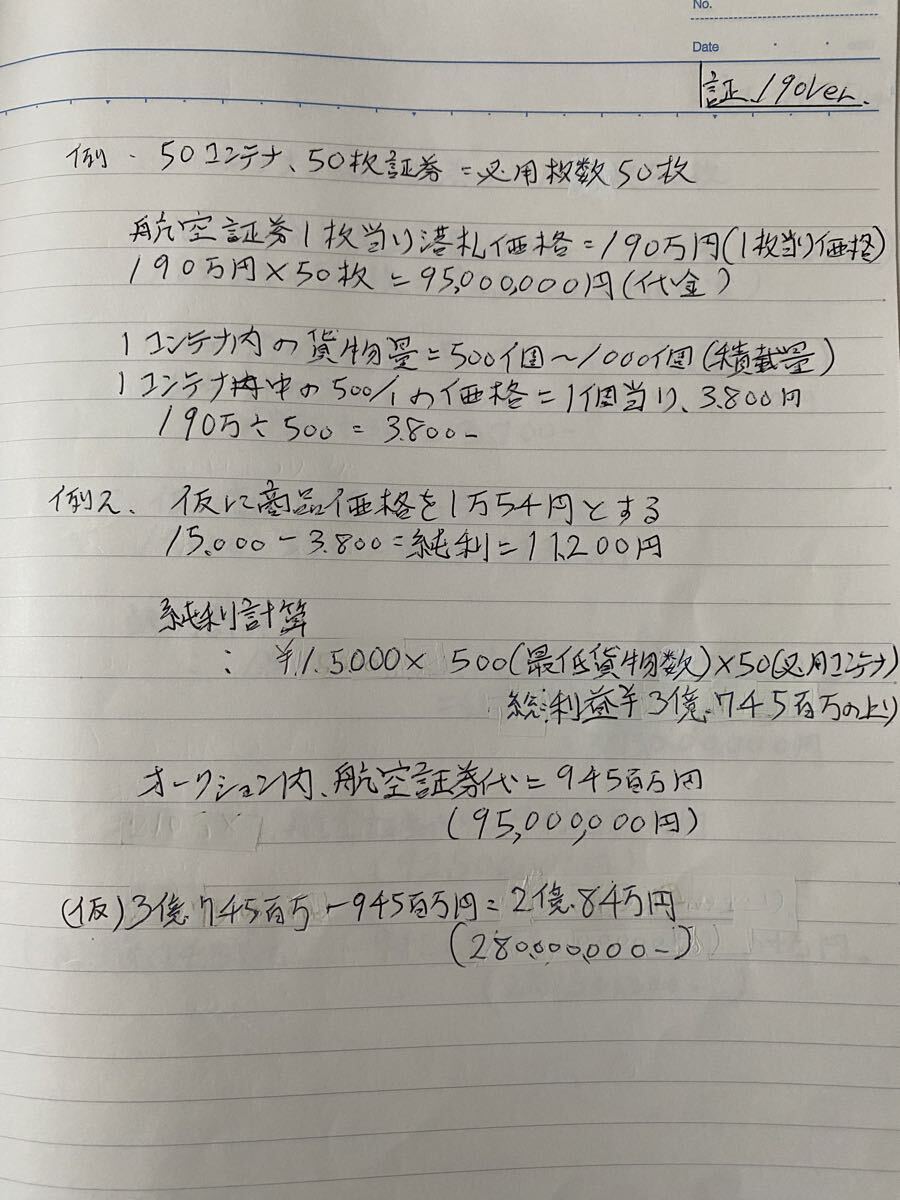 No.
Date
証.190ver.
例. 50コンテナ、50枚証券=必用枚数50枚
航空証券1枚当り落札価格=190万円(1枚当り価格)
190万円×50枚=95,000,000円(代金)
1コンテナ内の貨物量=500個〜1000個(積載量)
1コンテナ中の500/1の価格=1個当り、3.800円
190万÷500=3.800-
例え、仮に商品価格を1万5千円とする
15.000-3.800=純利=11.200円
純利計算
: ¥1.5000×500(最低貨物数)×50(必用コンテナ)
総:利益¥3億.745百万の上り
オークション内、航空証券代=945百万円
(95,000,000円)
(仮)3億.745百万-945百万円=2億.84万円
(280.000.000-)